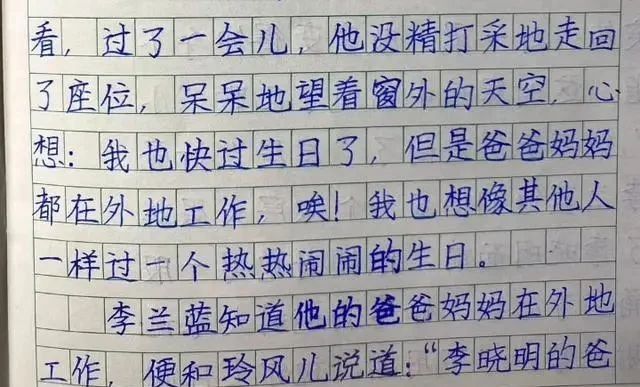 看，过了一会儿，他没精打采地走回
了座位，呆呆地望着窗外的天空，心
想：我也快过生日了，但是爸爸妈妈
都在外地工作，唉！我也想像其他人
一样过一个热热闹闹的生日。
李兰蓝知道他的爸爸妈妈在外地
工作，便和玲风儿说道：“李晓明的爸